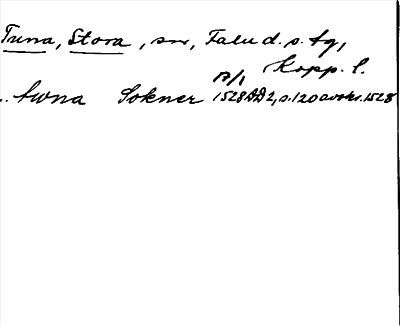 Tuna, Stora, sn, Falu d. s. tg,
Kopp. l.
17/1
.. twna Sokner 1528 DD 2, s. 120 avskr. 1528